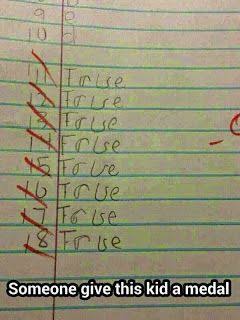 9 e
10 d
11 Frlse
12 Frlse
13 Frlse
14 Frlse
15 Frlse
16 Frlse
17 Frlse
18 Frlse
Someone give this kid a medal